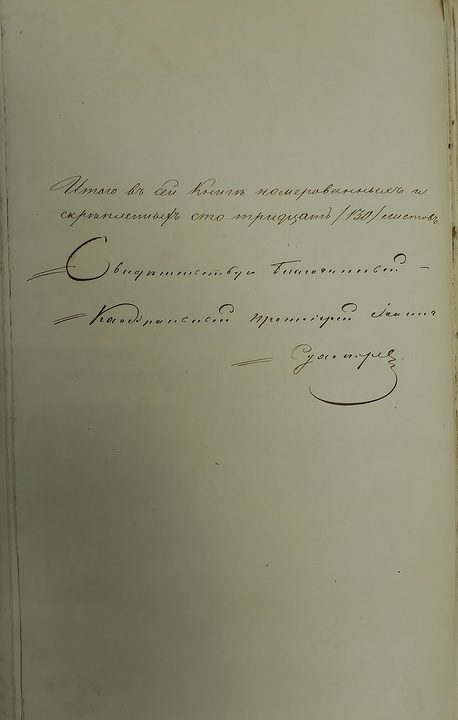 Итого въ сей Книгѣ номерованныхъ и
скрѣпленныхъ сто тридцать /130/ листовъ
Свидѣтельствую благочинной
протоіерей Іоаннъ